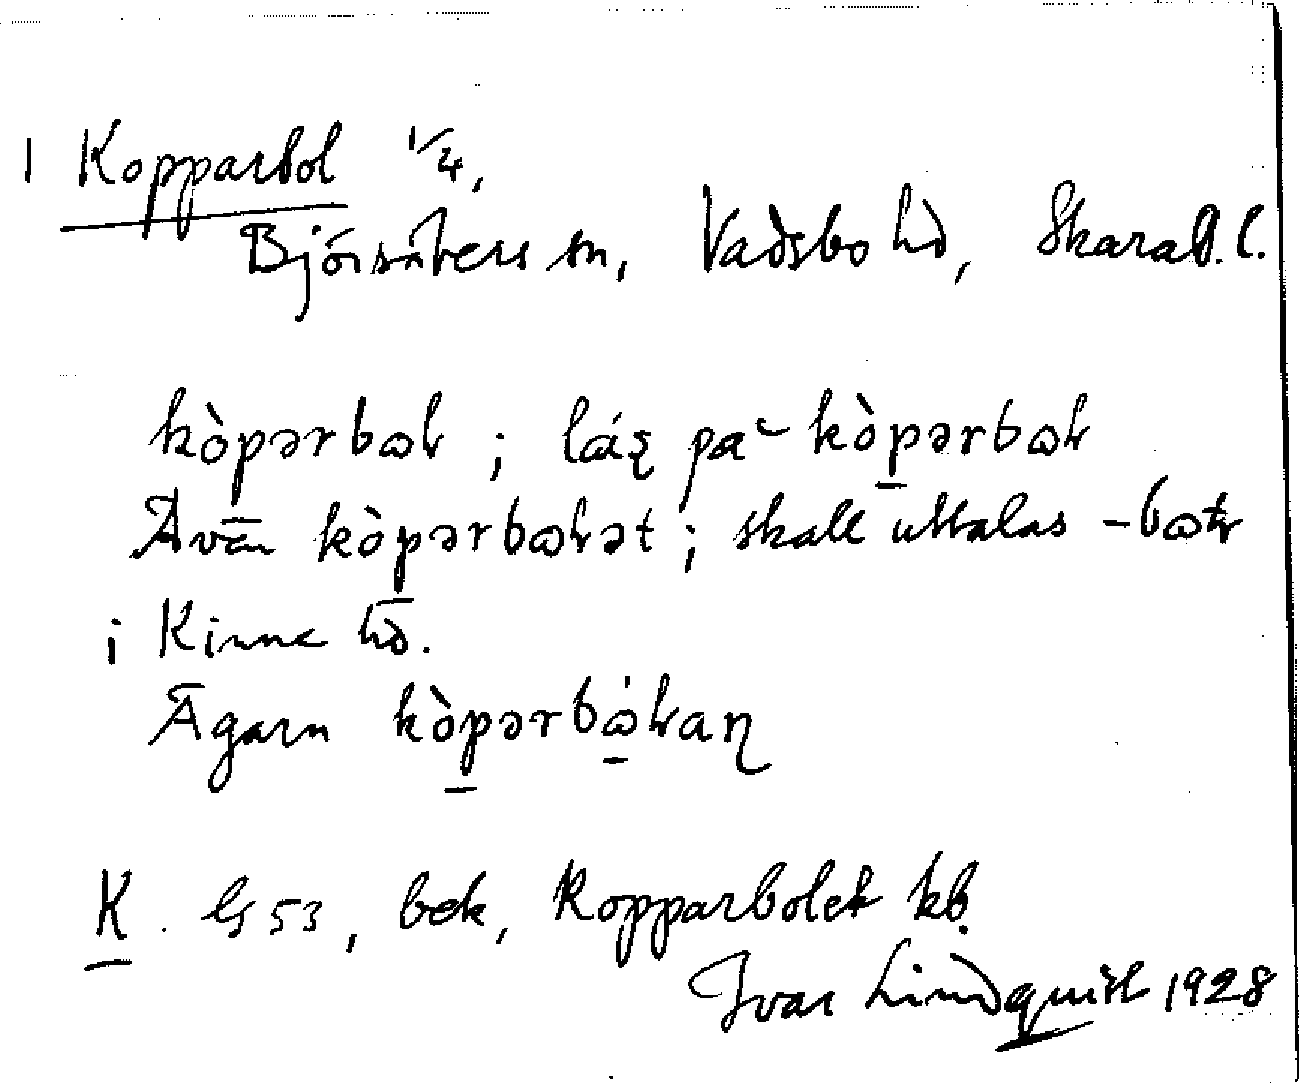 1 Kopparbol 1/4,
Björsäters sn, Vadsbo hd, Skarab. l.
kòpərbωł ; lág̨ pα kòpərbωł
Även kòpərbωłət ; skall uttalas -bωł
i Kinne hd.
Ägarn kòpərbώłaɳ
K. G 53, bek, Kopparbolet kb.
Ivar Lindquist 1928